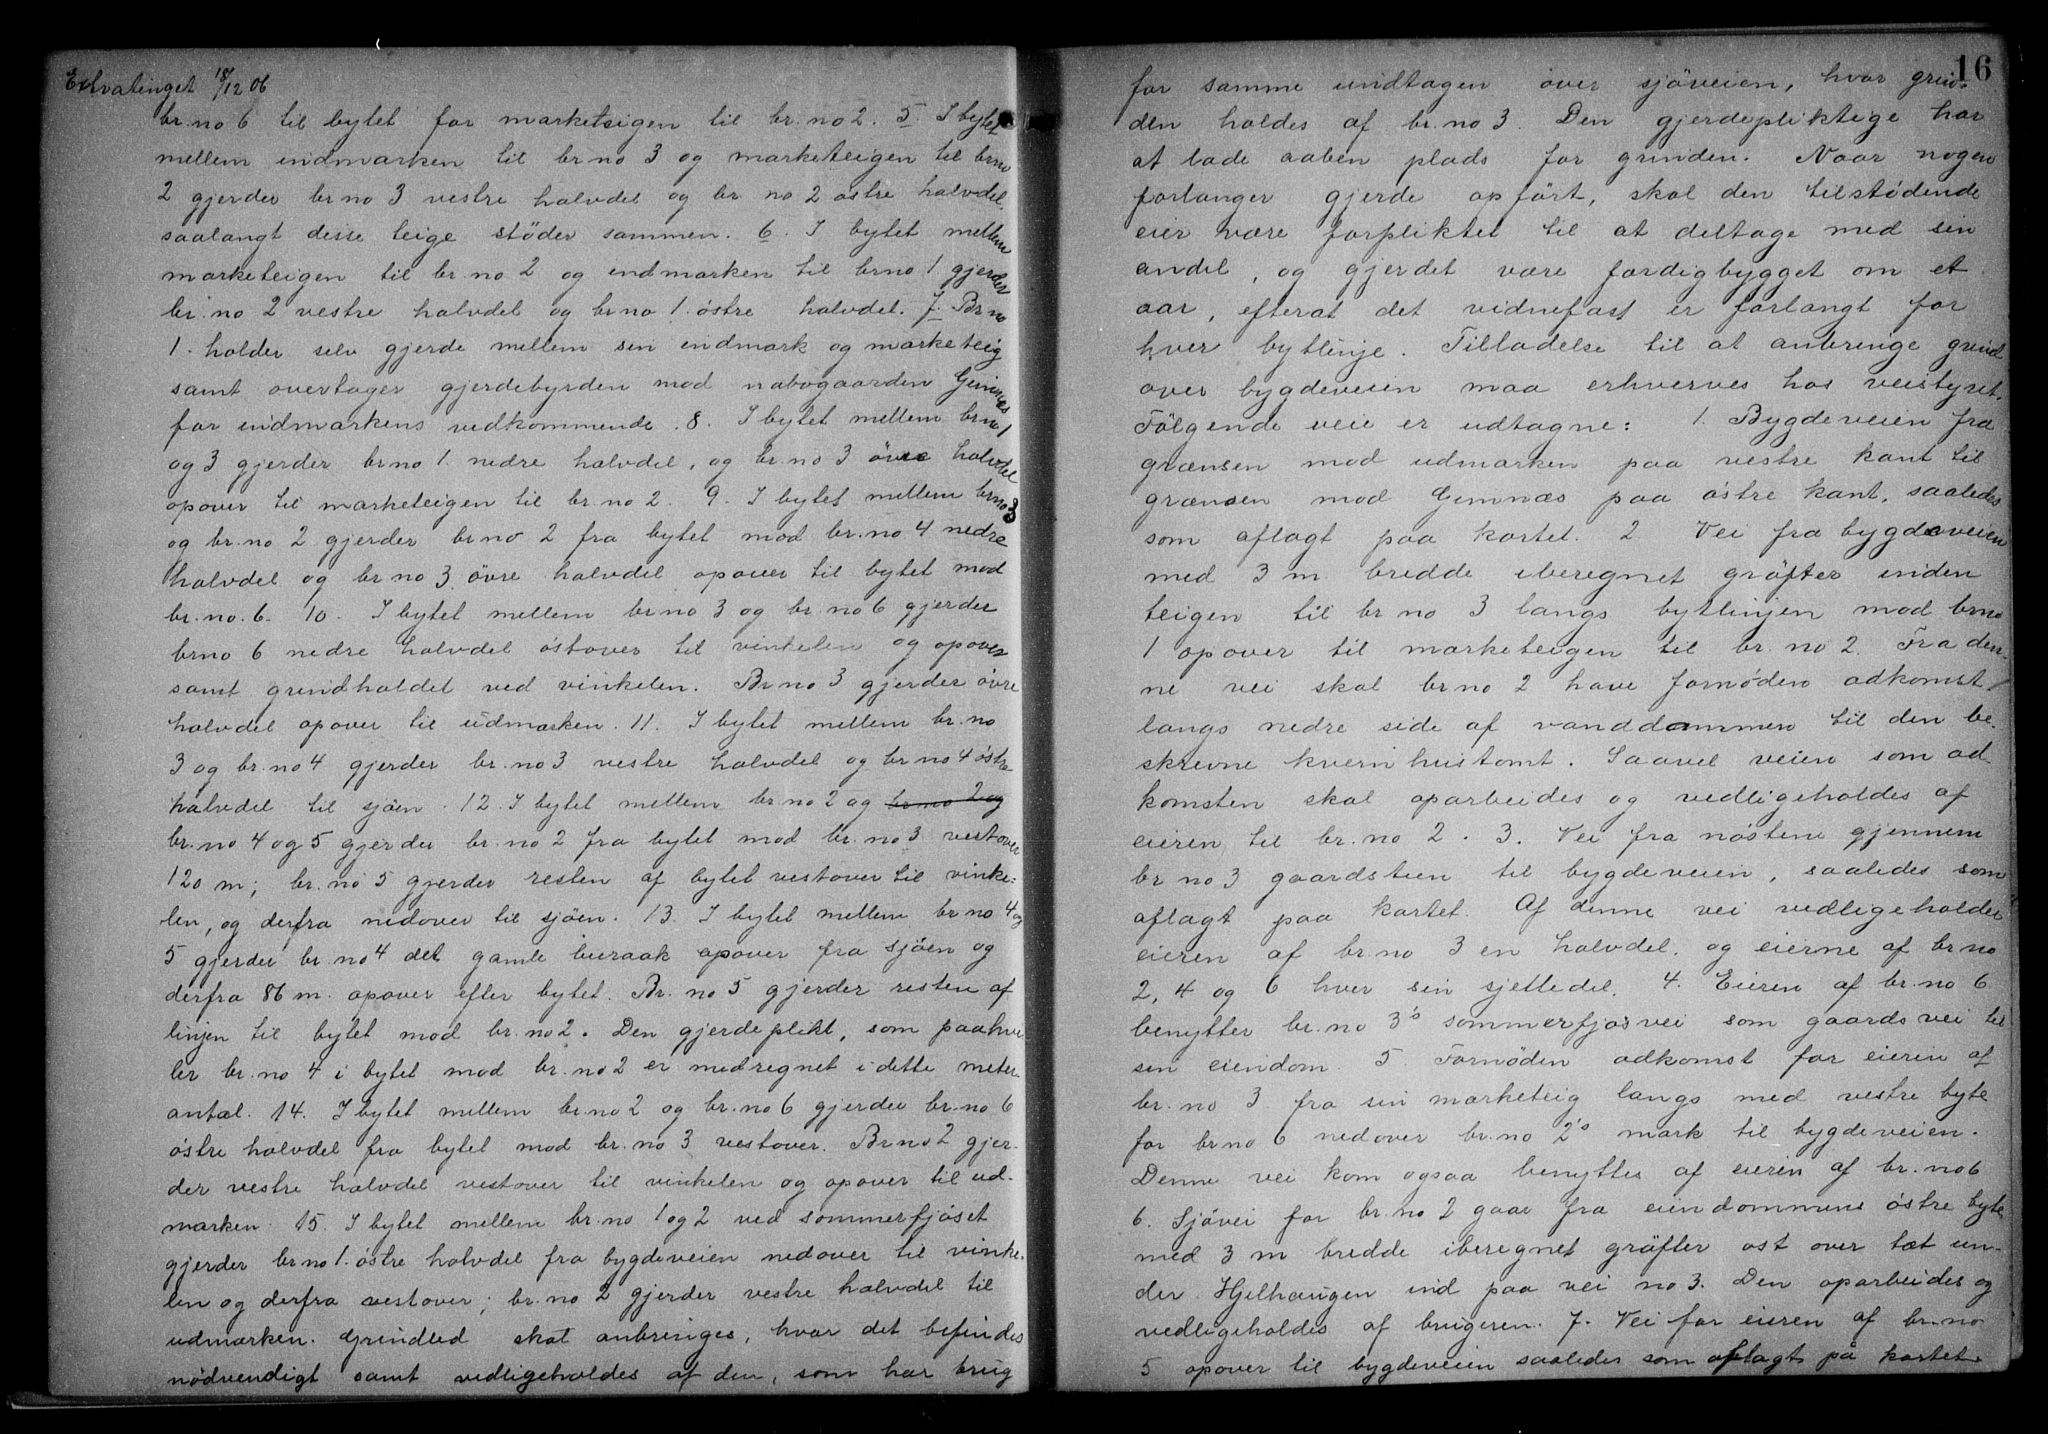 Extratinget 18/12 06
br.no 6 til bytet for marketeigen til br.no 2. 5. I bytet
mellem indmarken til br no 3 og marketeigen til brno
2 gjerder br no 3 vestre halvdel og br. no 2 østre halvdel,
saalangt desse teige støder sammen. 6. I bytet mellem
marketeigen til br.no 2 og indmarken til brno 1 gjerder
br.no 2 vestre halvdel og brno 1. östre halvdel. 7. Br no
1. holder selv gjerde mellem sin indmark og marketeig
samt overtager gjerdebyrden mod nabogaarden Gimnæs
for indmarkens vedkommende. 8. I bytet mellem brno 1
og 3 gjerder brno 1. nedre halvdel, og br.no 3 övre halvdel
opover til marketeigen til br.no 2. 9. I bytet mellem brno 3
og br.no 2 gjerder brno 2 fra bytet mod br.no 4 nedre
halvdel og br.no 3 övre halvdel opover til bytet mod
br.no.6. 10. I bytet mellem br no 3 og br.no 6 gjerder
brno 6 nedre halvdel östover til vinkelen og opover
samt grindholdet ved vinkelen. Br no 3 gjerder övre
halvdel opover til udmarken. 11. I bytet mellem br.no
3 og br.no 4 gjerder br.no 3 vestre halvdel og br no 4 östre
halvdel til sjöen. 12. I bytet mellem br no 2 og br no 2 og
br.no 4 og 5 gjerder br.no 2 fra bytet mod br.no 3 vestover
120 m; br.no 5 gjerder resten af bytet vestover til vinke-
len, og derfra nedover til sjöen. 13. I bytet mellem br no 4 og
5 gjerder br.no 4 det gamle bieraak opover fra sjöen og
derfra 86 m. opover efter bytet. Br. no 5 gjerder resten af
linjen til bytet mod br.no 2. Den gjerdeplikt, som paahvi
ler br.no 4 i bytet mod br.no 2 er medregnet i dette meter-
antal. 14. I bytet mellem br.no 2 og br.no 6 gjerder br.no 6
östre halvdel fra bytet mod br.no 3 vestover. Br no 2 gjer-
der vestre halvdel vestover til vinkelen og opover til ud-
marken. 15. I bytet mellem br.no 1 og 2 ved sommerfjöset
gjerder br no 1. östre halvdel fra bygdeveien nedover til vinke-
len og derfra vestover; br.no 2 gjerder vestre halvdel til
udmarken. Grindled skal anbringes, hvor det befindes
nödvendigt samt vedligeholdes af den, som har brug
16
for samme undtagen över sjöveien, hvor grin-
den holdes af br.no 3. Den gjerdepliktige har
at lade aaben plads for grinden. Naar nogen
forlanger gjerde opført, skal den tilstødende
eier være forpliktet til at deltage med sin
andel, og gjerdet være færdigbygget om et
aar, efterat det vidnefast er forlangt for
hver bytlinje. Tilladelse til at anbringe grind
over bygdeveien maa erhverves hos veistyret.
Fölgende veie er udtagne: 1. Bygdeveien fra
grænsen mod udmarken paa vestre kant til
grænsen mod Gimnæs paa östre kant, saaledes
som aflagt paa kartet. 2. Vei fra bygdeveien
med 3 m. bredde iberegnet gröfter inden
teigen til br no 3 langs bytlinjen mod brno
1 opover til marketeigen til br.no 2. Fra den-
ne vei skal brno 2 have fornøden adkomst
langs nedre side af vanddammen til den be-
skrevne kvernhustomt. Saavel veien som ad
komsten skal oparbeides og vedligeholdes af
eieren til br.no 2. 3. Vei fra nöstene gjennem
br no 3 gaardstun til bygdeveien, saaledes som
aflagt paa kartet. Af denne vei vedligeholder
eieren af br.no 3 en halvdel, og eierne af br no
2, 4 og 6 hver sin sjettedel. 4. Eieren af br.no 6
benytter br.no 3's sommerfjøsvei som gaardsvei til
sin eiendom. 5. Fornöden adkomst for eieren af
br.no 3 fra sin marketeig langs med vestre byte
for br no 6 nedover br.no 2's mark til bygdeveien.
Denne vei kan ogsaa benyttes af eieren af br.no 6
6. Sjövei for br.no 2 gaar fra eiendommens östre byte
med 3 m bredde iberegnet gröfter ost over tæt un-
der Hjelhaugen ind paa vei no 3. Den oparbeides og
vedligeholdes af brugeren. 7. Vei for eieren af br.no
5 opover til bygdeveien saaledes som aflagt på kartet